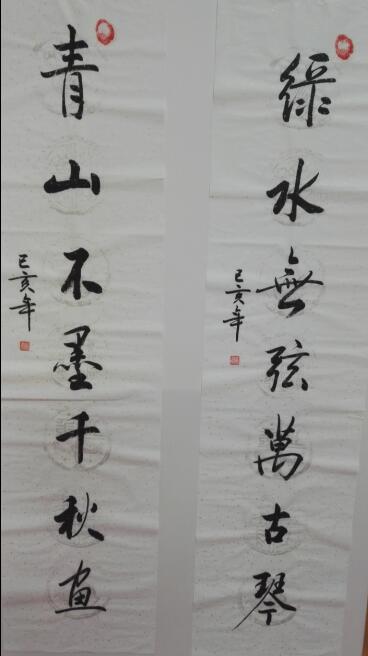 綠水無弦萬古琴
己亥年
青山不墨千秋畫
己亥年